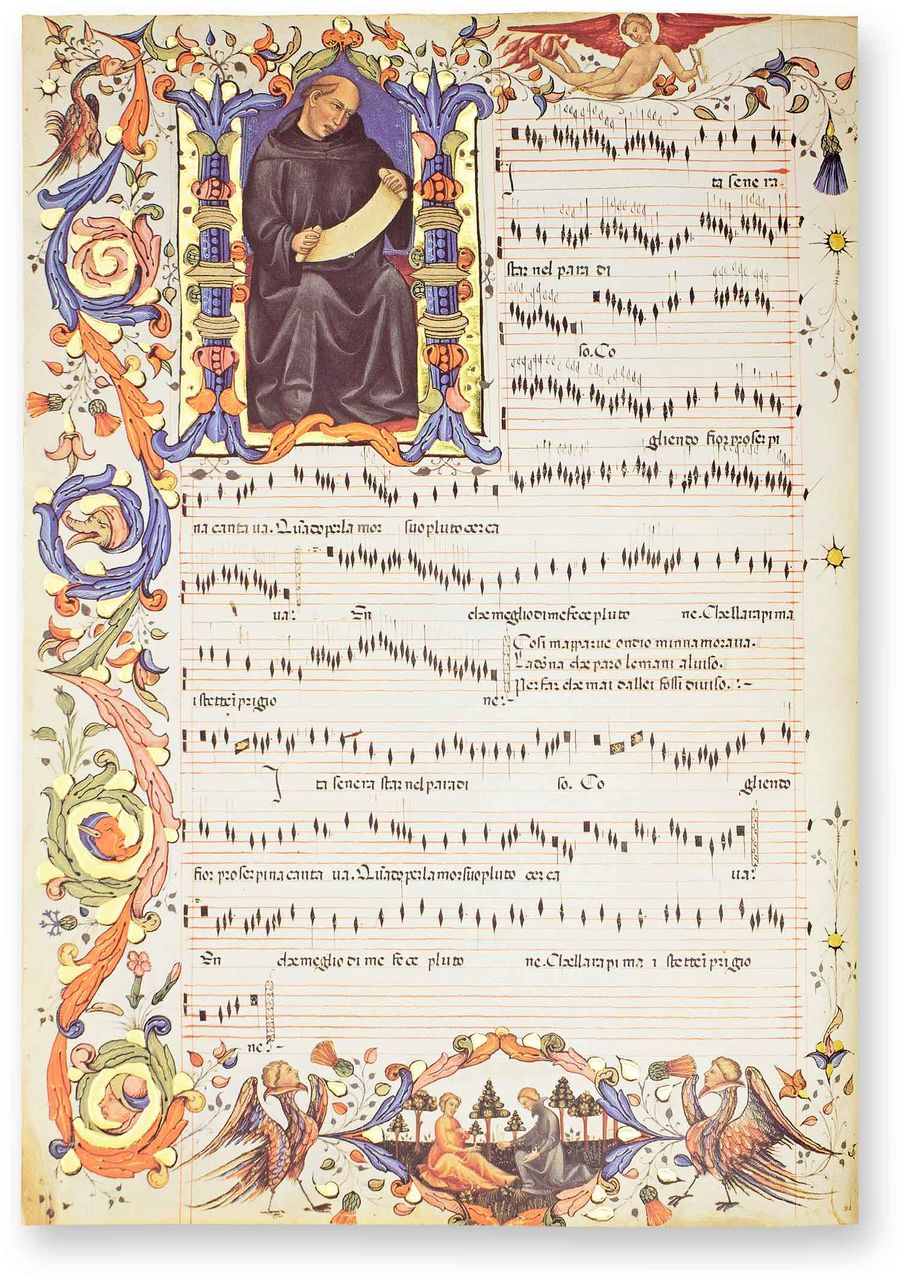 I ta se ne ra
star nel para di
so. Co
gliendo fior proser pi
na canta ua. Quādo per la mor suo pluto cerca
ua: En che meglio di me fece pluto ne. Chellarapi ma
Cosi mapparue ondio minnamoraua.
La dōna che paro le mani al uiso.
Per far che mai da llei fossi diuiso. :-
i stettēi prigio ne:-
I ta senera star nel paradi so. Co gliendo
fior proserpina canta ua. Quādo per la mor suo pluto cerca ua:
En che meglio di me fece pluto ne. Chellarapi ma i stettēi prigio
ne:-